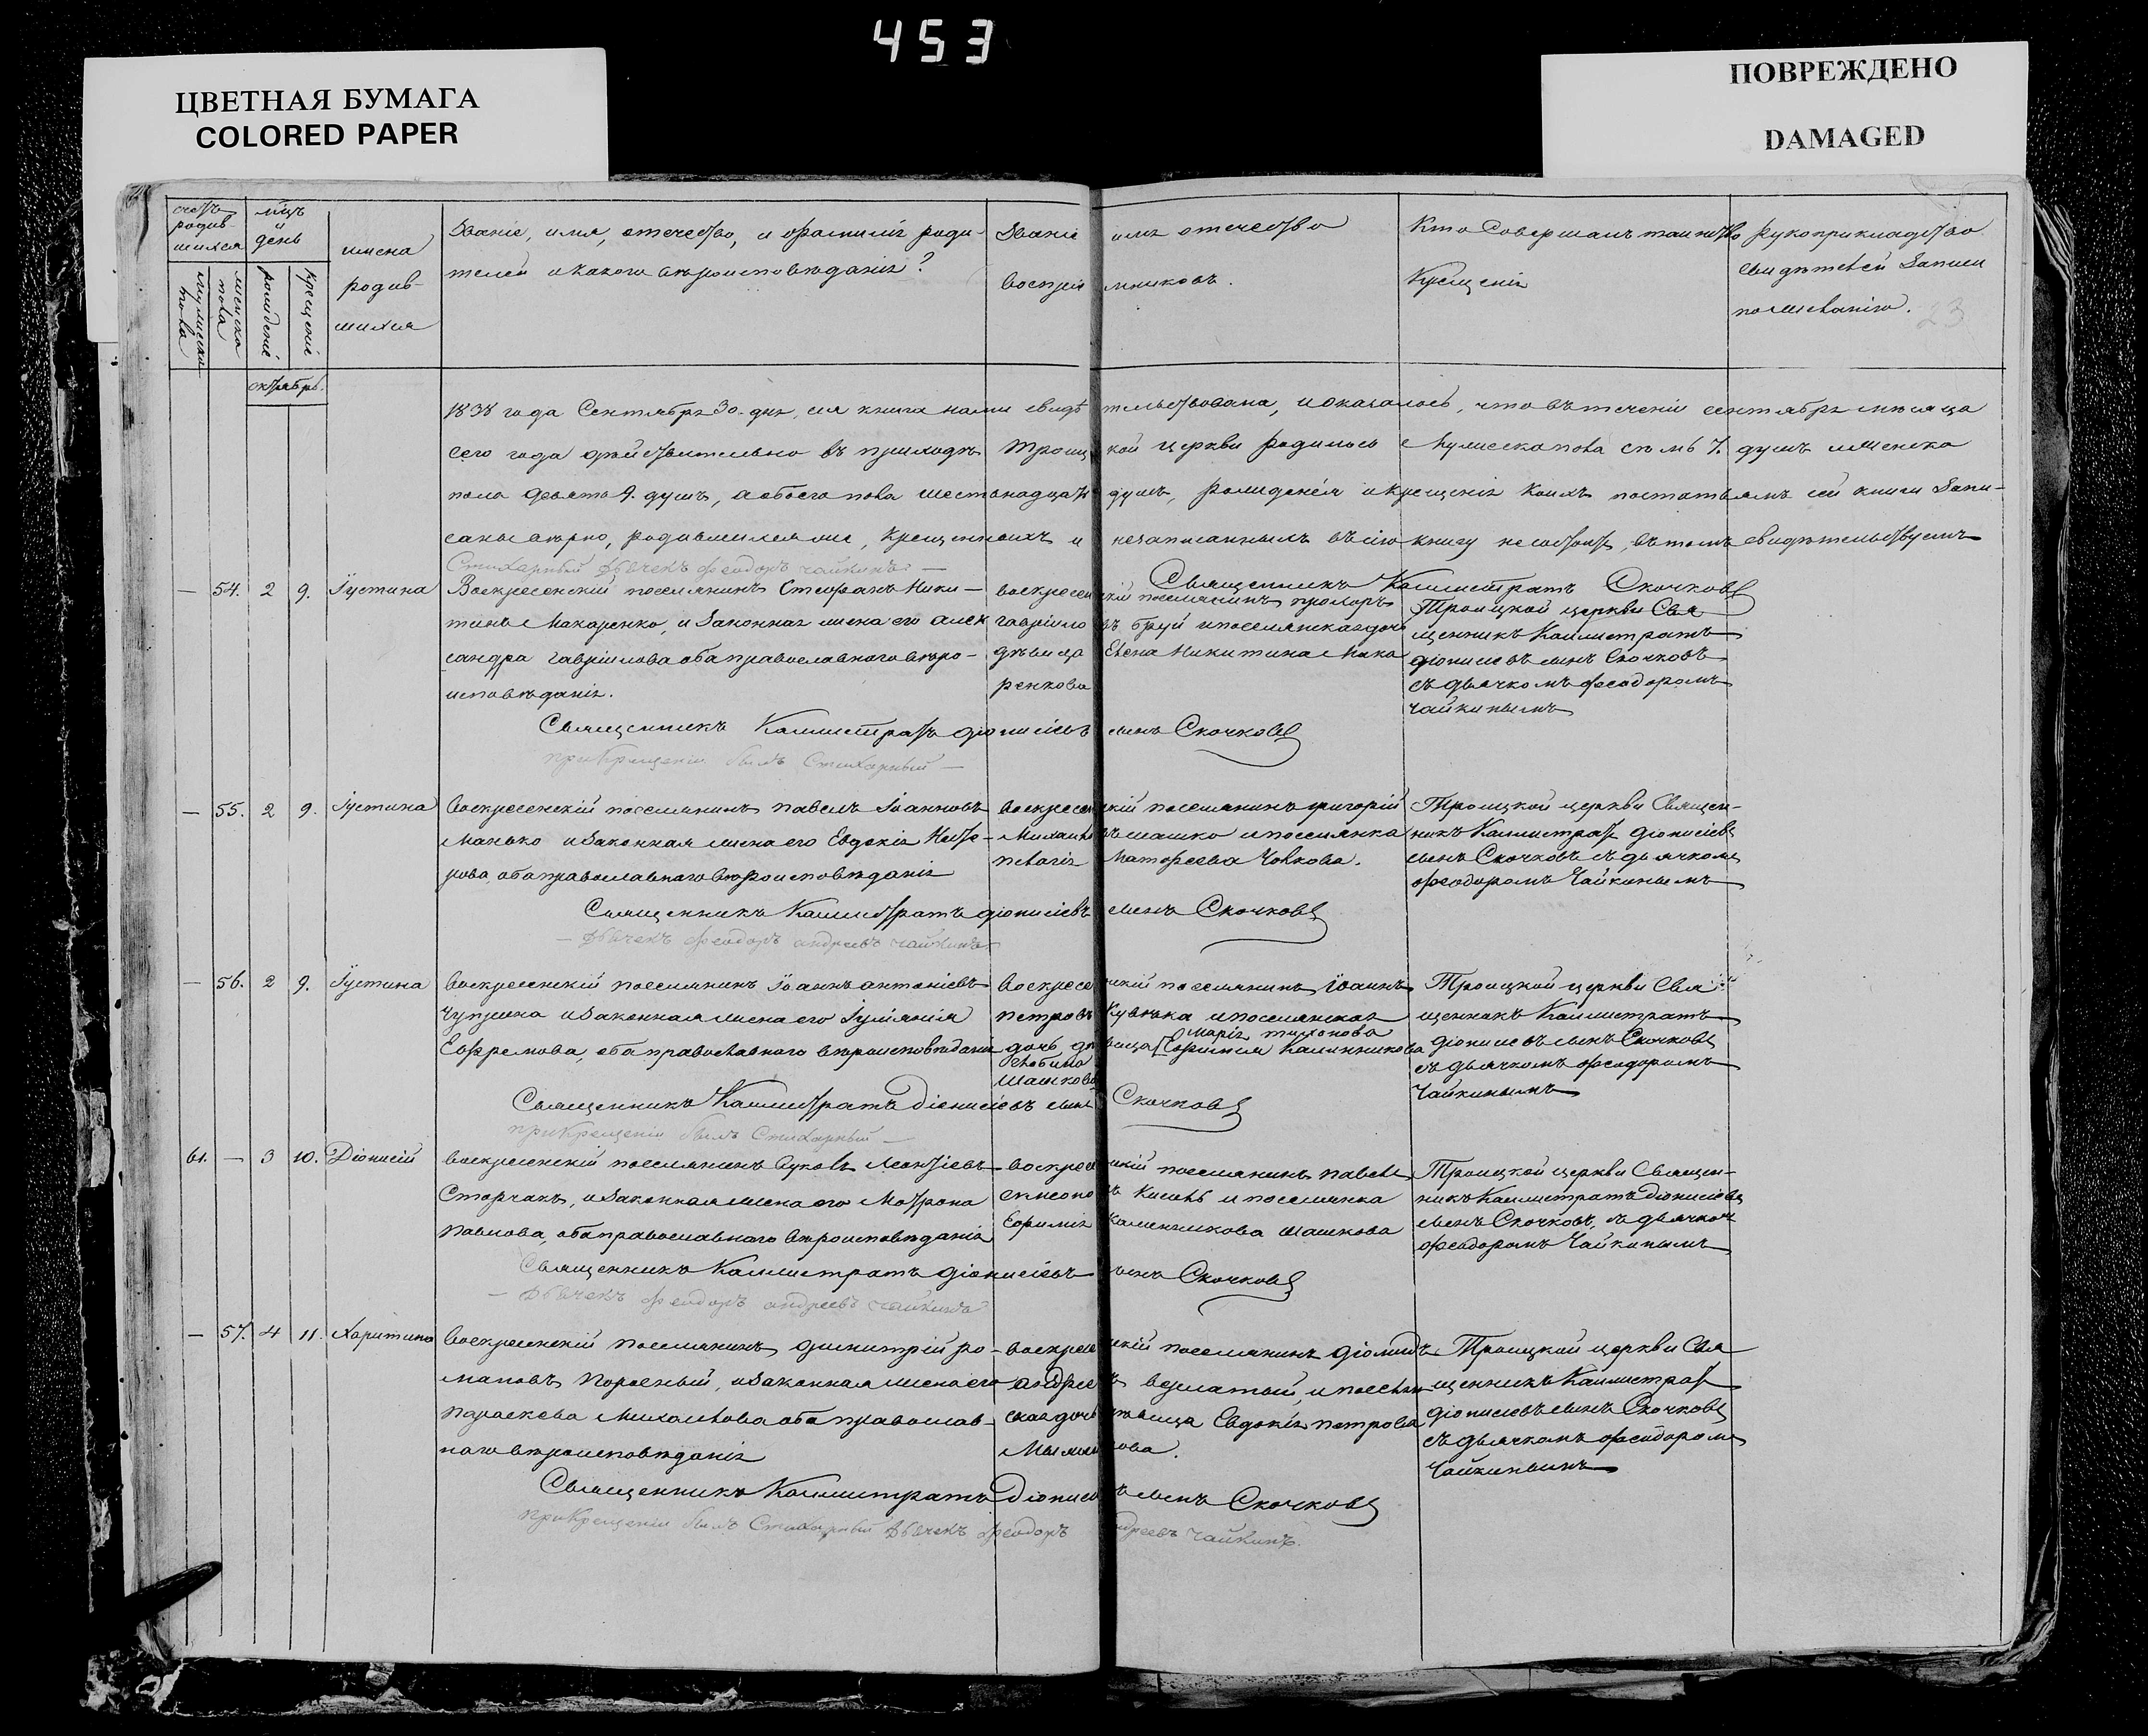 453
ЦВЕТНАЯ БУМАГА
COLORED PAPER
ПОВРЕЖДЕНО
DAMAGED
счетъ родив-шихся
мужеска пола
женска пола
мцъ и день
рожденіе
крещеніе
имена
родив-
шихся
Званіе, имя, отечество, и фамилія роди-
телей и какого вѣроисповѣданія?
Званіе имя отечество
воспріемниковъ.
Кто Совершалъ таинство
Крещенія
Рукоприкладство
свидѣтелей Записи
по желанію.
23
октябрь.
1838 года Сентября 30. дня, сія книга нами свидѣтельствована, и оказалось, что въ теченіи сентября мѣсяца
сего года дѣйствительно въ приходѣ Троицкой церкви родилось Мужеска пола семь 7. душъ и Женска
пола девять 9. душъ, а обоего пола шестьнадцать душъ, рожденія и крещенія коихъ по статьямъ сей книги Запи-
саны вѣрно, родившихся же, крещенныхъ и незаписанныхъ въ сію книгу не состоитъ, въ томъ свидѣтельствуемъ
Священникъ Каллистратъ Скочковъ
Стихарный Дьячекъ Феодоръ Чайкинъ —
— 54. 2 9. Іустина
Воскресенскій поселянинъ Стефанъ Ники-
тинъ Макаренко, и Законная жена его Алек
сандра Гавріилова оба православнаго вѣро-
исповѣданія.
воскресенскій поселянинъ Прохоръ
Гавріиловъ Бруй и поселянская дочь
дѣвица Елена Никитина Мака
ренкова
Троицкой церкви Свя
щенникъ Каллистратъ
Діонисіевъ сынъ Скочковъ
съ дьячкомъ Феодоромъ
Чайкинымъ
Священникъ Каллистратъ Діонисіевъ сынъ Скочковъ
при Крещеніи былъ Стихарный —
— 55. 2 9. Іустина
Воскресенскій поселянинъ Павелъ Іоанновъ
Манько и Законная жена его Евдокія Несто-
рова, оба православнаго вѣроисповѣданія
воскресенскій поселянинъ Григорій
Михаиловъ Машко и поселянка
Пелагія Матфеева Чолкова.
Троицкой церкви Священ-
никъ Каллистратъ Діонисіевъ
сынъ Скочковъ съ дьячкомъ
Феодоромъ Чайкинымъ
Священникъ Каллистратъ Діонисіевъ сынъ Скочковъ
— Дьячекъ Феодоръ Андреевъ Чайкинъ
— 56. 2 9. Іустина
Воскресенскій поселянинъ Іоаннъ Антоніевъ
Чуприна и Законная жена его Іуліанія
Ефремова, оба православнаго вѣроисповѣданія
воскресенскій поселянинъ Іоаннъ
Петровъ и поселянская
Марія Тихонова
дочь дѣвица Евфимія Калинникова
Шашкова
Троицкой церкви Свя
щенникъ Каллистратъ
Діонисіевъ сынъ Скочковъ
съ дьячкомъ Феодоромъ
Чайкинымъ
Священникъ Каллистратъ Діонисіевъ сынъ Скочковъ
при Крещеніи былъ Стихарный —
61. — 3 10. Діонисій
Воскресенскій поселянинъ Леонтіевъ
Сторчакъ, и Законная жена его Матрона
Павлова, оба православнаго вѣроисповѣданія
воскресенскій поселянинъ Павелъ
Кисель и поселянка
Евфимія Калинникова Шашкова
Троицкой церкви Священ-
никъ Каллистратъ Діонисіевъ
сынъ Скочковъ, съ дьячкомъ
Феодоромъ Чайкинымъ
Священникъ Каллистратъ Діонисіевъ сынъ Скочковъ
— Дьячекъ Феодоръ Андреевъ Чайкинъ
— 57. 4 11. Харитина
Воскресенскій поселянинъ Димитрій Ро-
мановъ, и Законная жена его
Параскева Михаилова оба православ-
наго вѣроисповѣданія
воскресенскій поселянинъ Діомидъ
Андреевъ и поселян
ская дочь дѣвица Евдокія Петрова
Троицкой церкви Свя
щенникъ Каллистратъ
Діонисіевъ сынъ Скочковъ
съ дьячкомъ Феодоромъ
Чайкинымъ
Священникъ Каллистратъ Діонисіевъ сынъ Скочковъ
при Крещеніи былъ Стихарный Дьячекъ Феодоръ Андреевъ Чайкинъ.